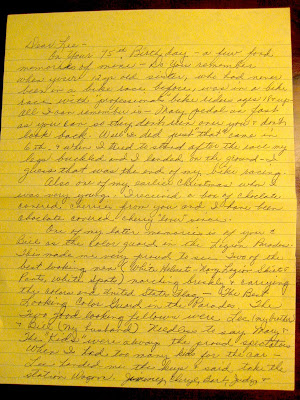 Dear Lee -
On Your 75th Birthday - a few fond
memories of mine - Do You remember
when your 12 yr old sister, who had never
been in a bike race before, was in a bike
race with professional bike riders ages 16 + up
All I can remember is - Gray pedal as fast
as you can so they don't run over you + don't
look back. Well I did just that came in
6th. + when I tried to stand after the race my
legs buckled and I landed on the ground - I
guess that was the end of my bike racing.
Also one of my earliest Christmas when I
was very young. I received a box of choclate
covered cherries from you and I have been
choclate covered cherry lover since.
One of my latter memories is of you &
Bill in the Color guard in the Legion Parades.
This made me very proud to see Two of the
best looking men White Helmet - Navy Legion Shirt &
Pants, White Spats, marching briskly & carrying
the colors and United States Flag - The Best
Looking Color Guard in the Parades. The
Two good looking fellows were Lee (my brother)
& Bill (my husband) Needless to say Mary &
The Kids were always the proud spectators
When I had too many kids for the car -
Lee handed me the Keys & said take the
station Wagon. Jimmy, Cheryl, Barb, Judy &